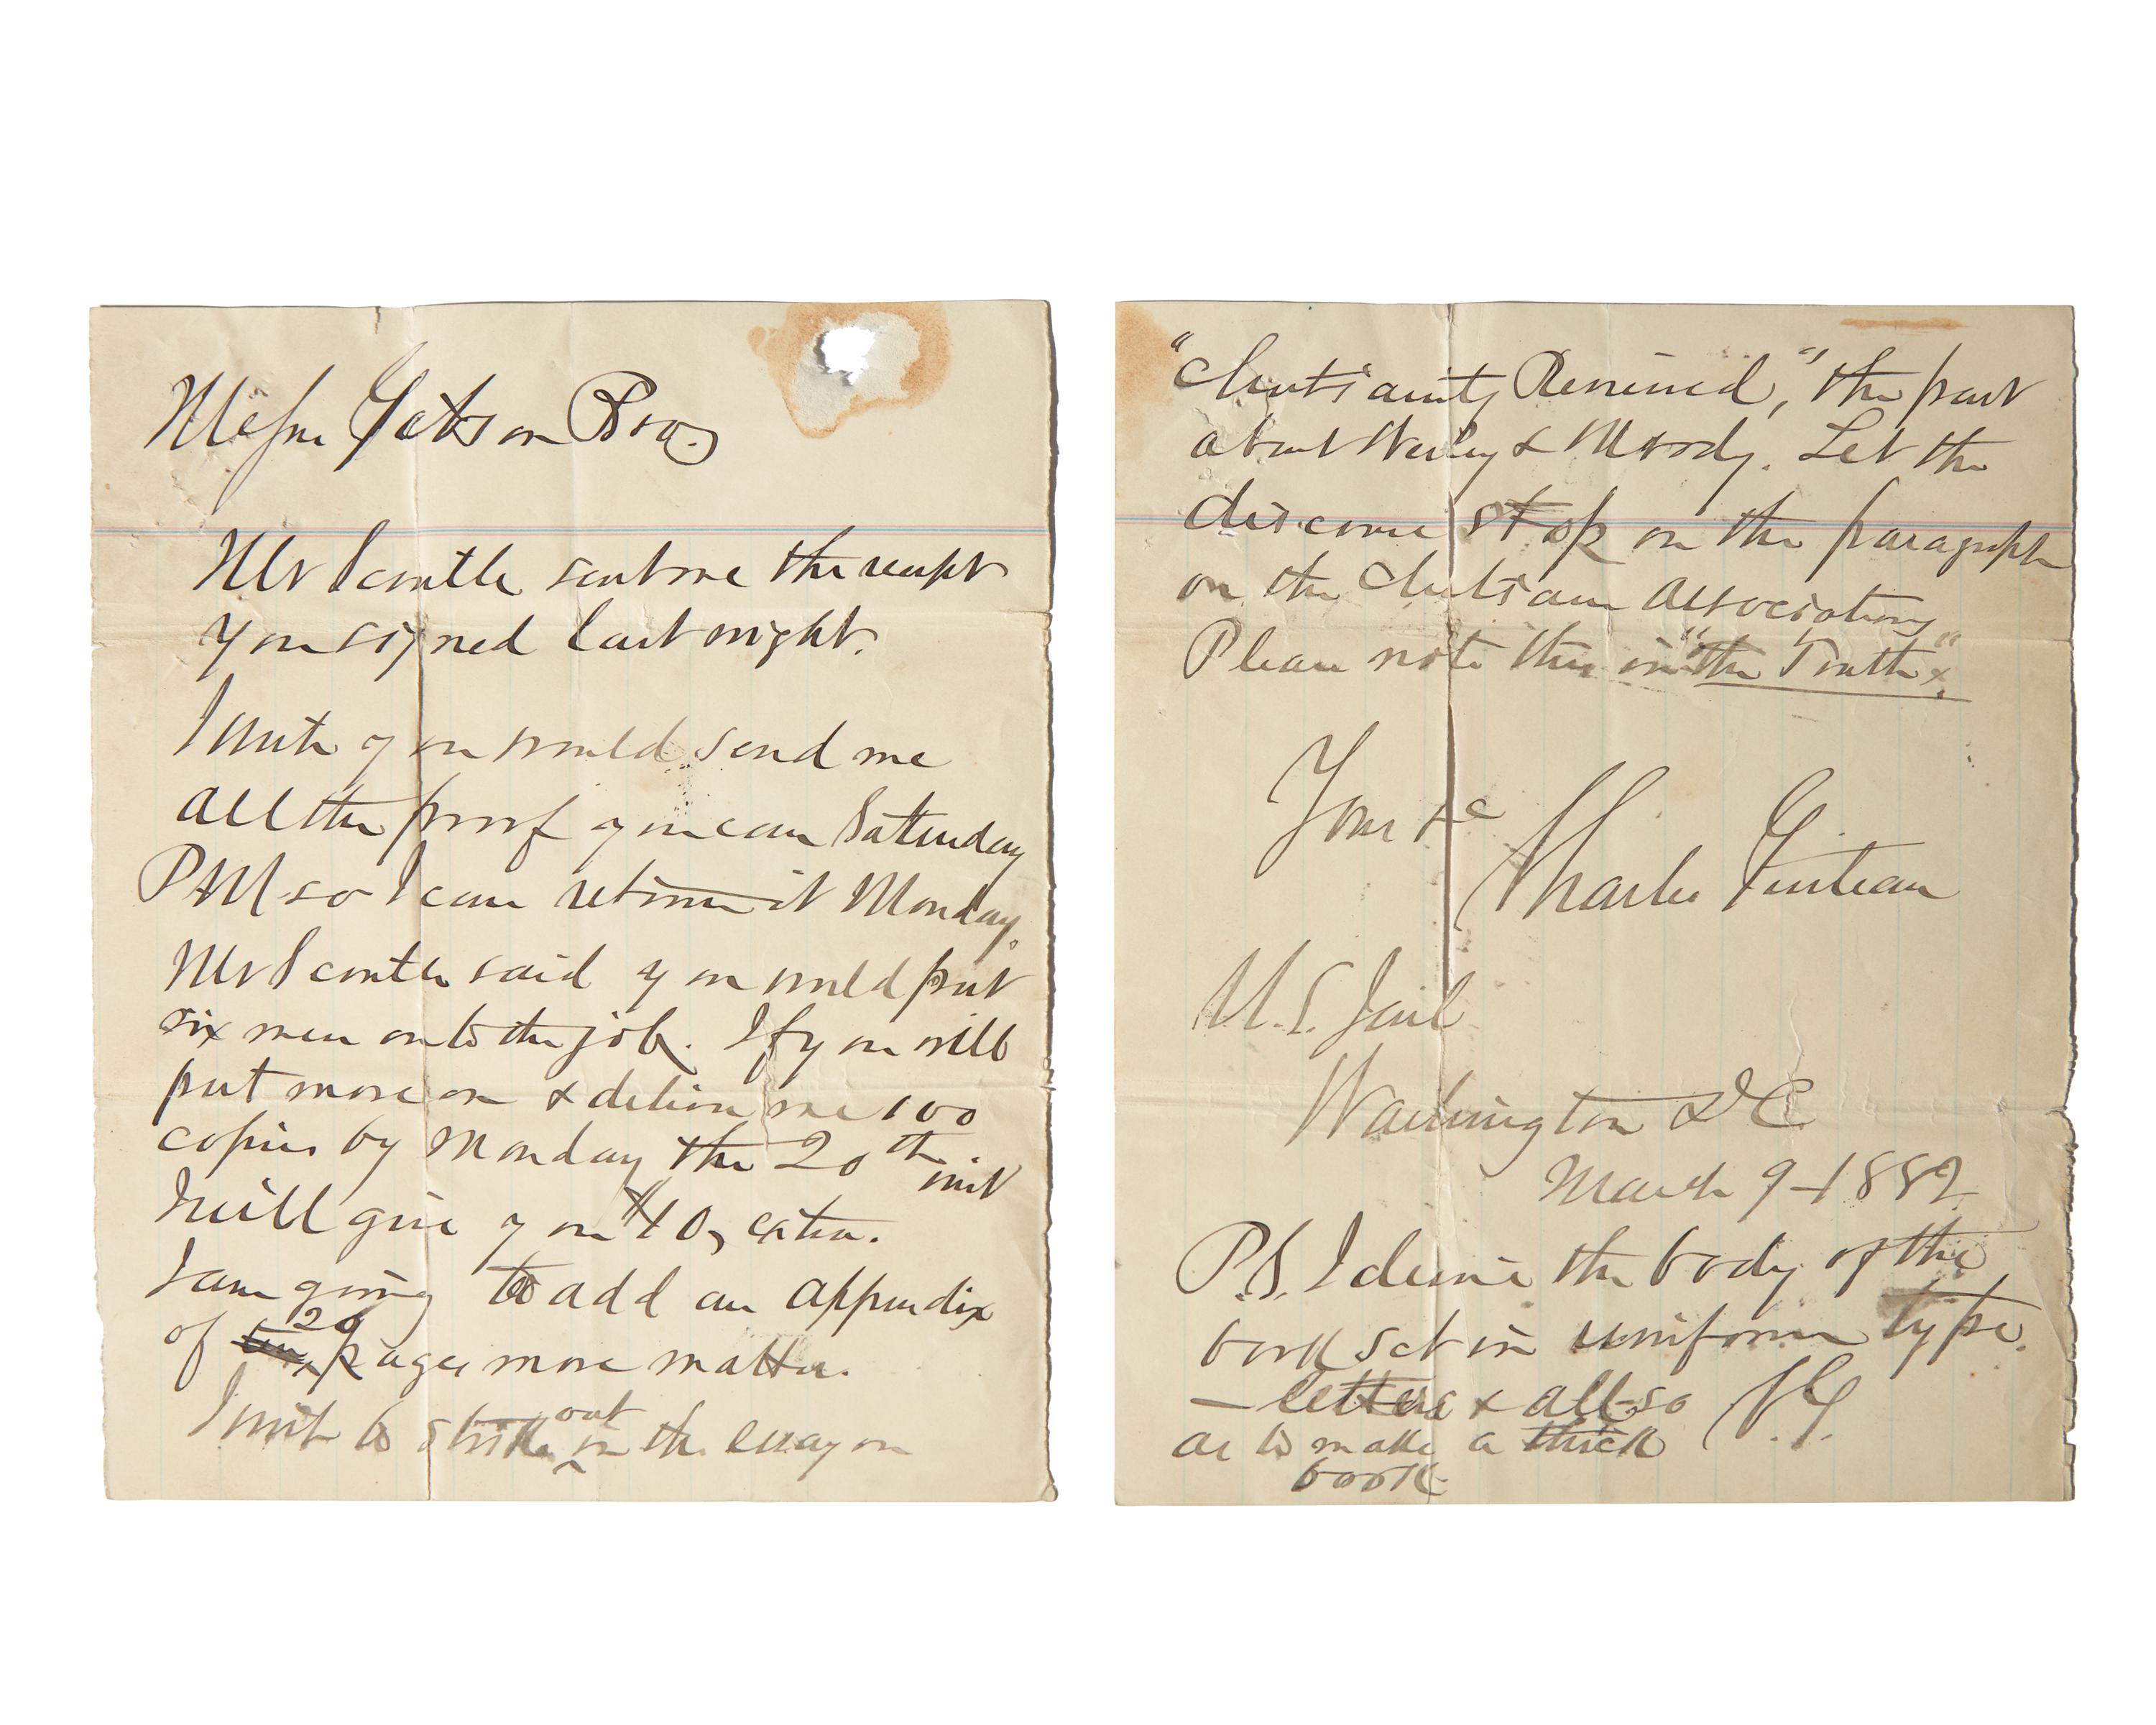 Messrs Gibson Bros
Mr Scoville sent me the receipt
you signed last night.
I wish you would send me
all the proof you can Saturday
PM so I can return it Monday.
Mr Scoville said you would put
six men onto the job. If you will
put more on & deliver me 100
copies by Monday the 20th inst
I will give you $10, extra.
I am going to add an appendix
of 20 pages more matter.
I wish to strike out in the essay on
"Christianity Reviewed," the part
about Wesley & Moody. Let the
discourse stop on the paragraph
on the Christian Association,
Please note this in "the Truth".
Yours &c
Charles Guiteau
U.S. Jail
Washington DC
March 9-1882
P.S. I desire the body of the
book set in uniform type.
— letters & all so
as to make a thick
book
C.G.